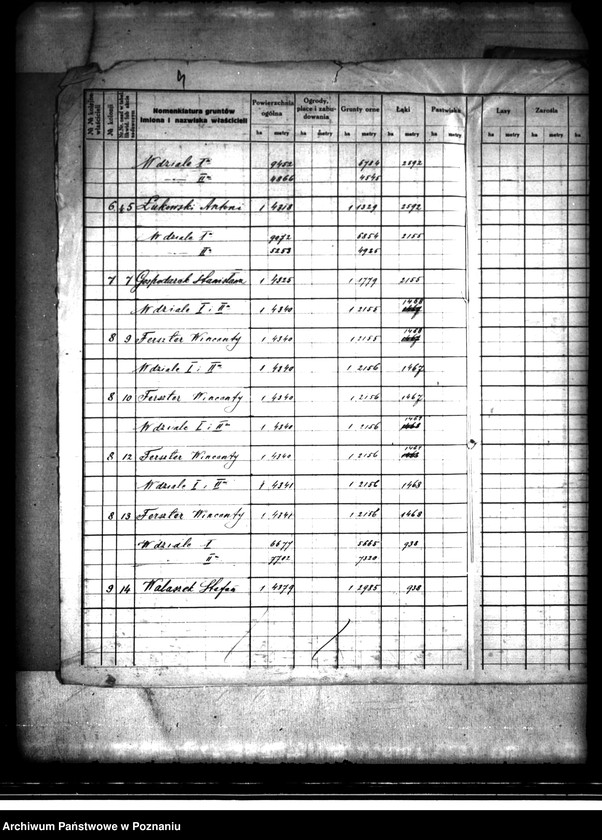 № kolejny właścicieli
№ kolonji
Nomenklatura gruntów
Imiona i nazwiska właścicieli
Powierzchnia ogólna
Ogrody, place i zabudowania
Grunty orne
Łąki
Pastwiska
Lasy
Zarośla
ha metry ha metry ha metry ha metry ha metry ha metry ha metry
W dziale I 9452 6784 2592
II 4866 4545
6 5 Łukowski Antoni 1 4318 1 1329 2592
W dziale I 9072 6854 2155
II 5253 4925
7 7 Gospodarek Stanisława 1 4325 1 1779 2155
W dziale I i II 1 4340 1 2155 1468
8 9 Ferszter Wincenty 1 4340 1 2155 1468
W dziale I i II 1 4340 1 2156 1467
8 10 Ferszter Wincenty 1 4340 1 2156 1467
W dziale I i II 1 4340 1 2156
8 12 Ferszter Wincenty 1 4340 1 2156
W dziale I i II 1 4341 1 2156 1468
8 13 Ferszter Wincenty 1 4341 1 2156 1468
W dziale I 6677 5665 938
II 7702 7320
9 14 Walaszek Stefan 1 4379 1 2985 938
Archiwum Państwowe w Poznaniu